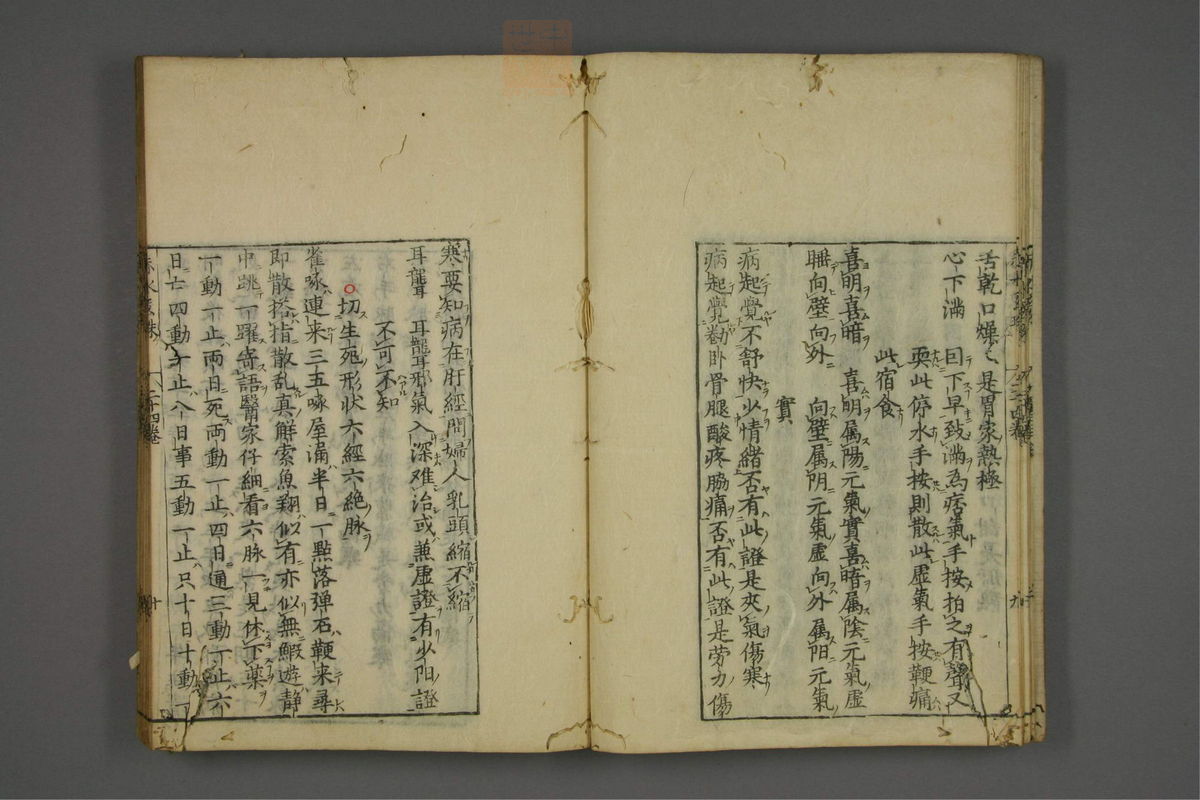 舌乾口燥〻是胃家熱極
心下満　回下早致満為痞氣手按拍之有聲又
耎此停水手按則散此虚氣手按鞕痛
此宿食
喜明喜暗　喜明属陽元氣實喜暗属陰元氣虚
睡向壁向外　向壁属阴元氣虚向外属阳元氣
實
病起覺不舒快少情緒否有此證是夾氣傷寒
病起覺勌卧骨腿酸疼脇痛否有此證是劳力傷
寒要知病在肝經問婦人乳頭縮不縮
耳聾　耳聾邪氣入深难治或兼虚證有少阳證
不可不知
○切生死形状六經六絶脉
雀啄連来三五啄屋漏半日一點落弹石鞕来尋
即散搭指散乱真解索魚翔似有亦似無鰕遊静
中跳一躍寄語醫家仔細看六脉一見休下薬
一動一止两日死两動一止四日通三動一止六
日亡四動一止八日事五動一止只十日十動一